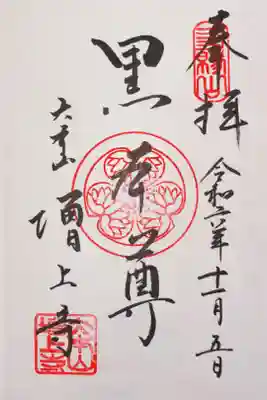 奉拝
令和六年十一月五日
黒本尊
大本山
増上寺
三縁山